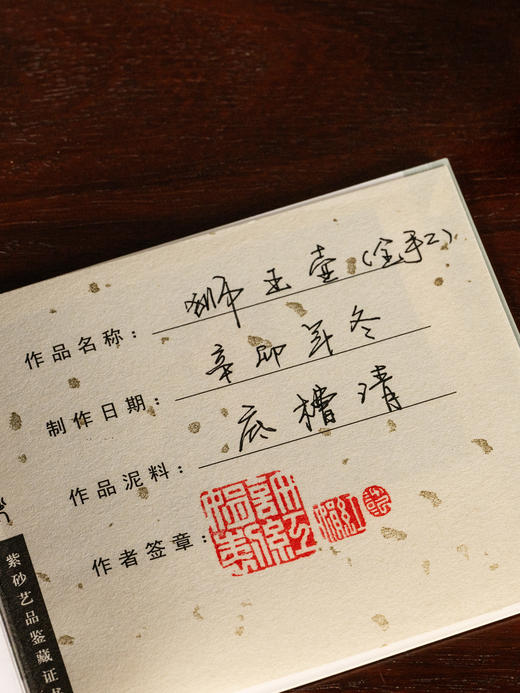 作品名称：狮王壶（全手工）
制作日期：辛卯年冬
作品泥料：底槽清
作者签章：
紫砂艺品鉴藏证书